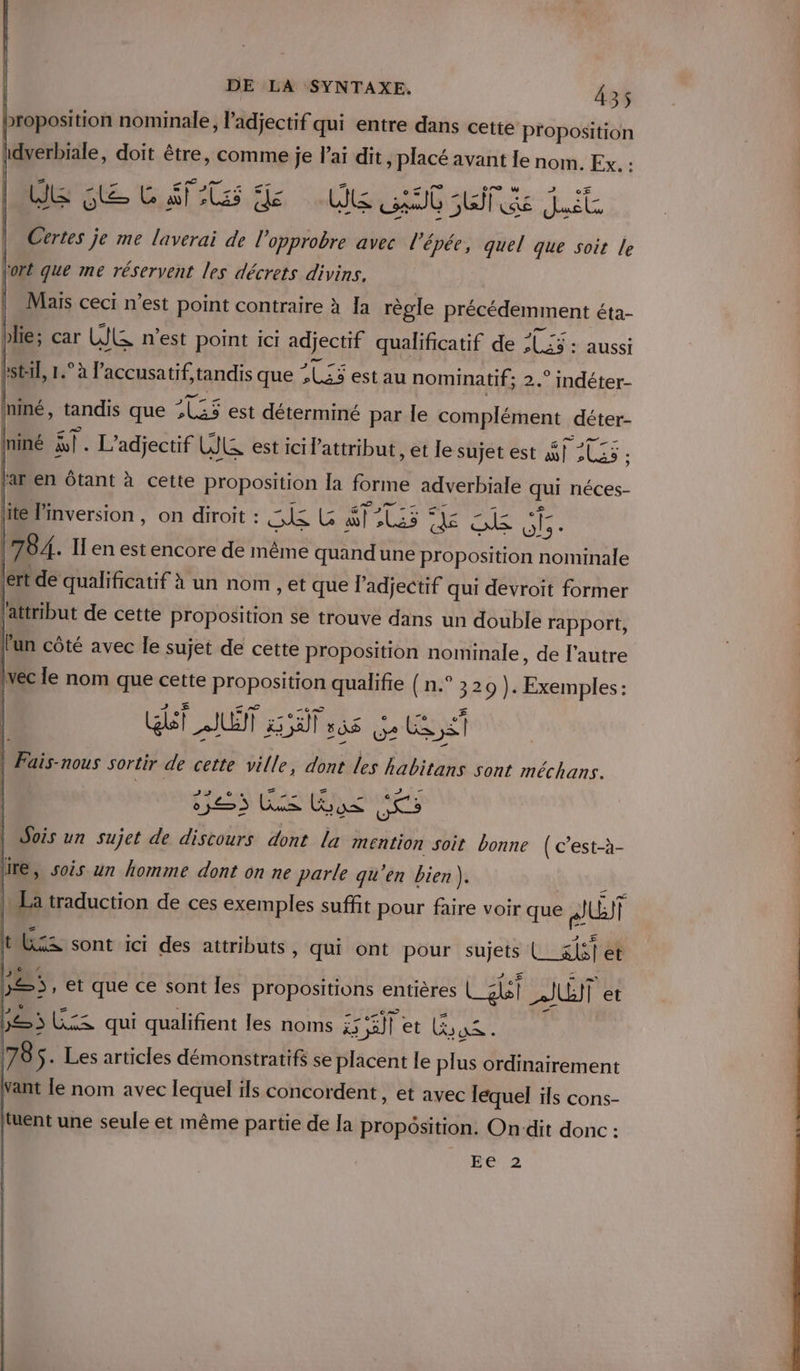 DE LA SYNTAXE. 435
proposition nominale, l'adjectif qui entre dans cette proposition
adverbiale, doit être, comme je l'ai dit, placé avant le nom. Ex. :
سَأَغْسِلُ عَنِّى ٱلْعَارَ بِٱلسَّيْفِ جَالِبًا عَلَىَّ قَضَآءُ ٱللّٰهِ مَا كَانَ جَالِبَا
Certes je me laverai de l'opprobre avec l'épée, quel que soit le
sort que me réservent les décrets divins.
Mais ceci n'est point contraire à la règle précédemment éta-
blie; car جَالِبًا n'est point ici adjectif qualificatif de قَضَآءُ : aussi
est-il, 1.° à l'accusatif, tandis que قَضَآءُ est au nominatif; 2.° indéter-
miné, tandis que قَضَآءُ est déterminé par le complément déter-
miné ٱللّٰهِ. L'adjectif جَالِبًا est ici l'attribut, et le sujet est قَضَآءُ ٱللّٰهِ ;
car en ôtant à cette proposition la forme adverbiale qui néces-
site l'inversion, on diroit : عَلَىَّ قَضَآءُ ٱللّٰهِ مَا
784. Il en est encore de même quand une proposition nominale
sert de qualificatif à un nom, et que l'adjectif qui devroit former
l'attribut de cette proposition se trouve dans un double rapport,
l'un côté avec le sujet de cette proposition nominale, de l'autre
avec le nom que cette proposition qualifie (n.° 329). Exemples:
أَخْرِجْنَا مِنْ هٰذِهِ ٱلْقَرْيَةِ ٱلظَّالِمِ أَهْلُهَا
Fais-nous sortir de cette ville, dont les habitans sont méchans.
كُنْ حَدِيثًا حَسَنًا ذِكْرُهُ
Sois un sujet de discours dont la mention soit bonne (c'est-à-
dire, sois un homme dont on ne parle qu'en bien).
La traduction de ces exemples suffit pour faire voir que ٱلظَّالِمِ
et حَسَنًا sont ici des attributs, qui ont pour sujets أَهْلُهَا et
ذِكْرُهُ, et que ce sont les propositions entières ٱلظَّالِمِ أَهْلُهَا et
حَسَنًا ذِكْرُهُ qui qualifient les noms ٱلْقَرْيَةِ et حَدِيثًا.
785. Les articles démonstratifs se placent le plus ordinairement
avant le nom avec lequel ils concordent, et avec lequel ils cons-
tituent une seule et même partie de la proposition. On dit donc :
Ee 2